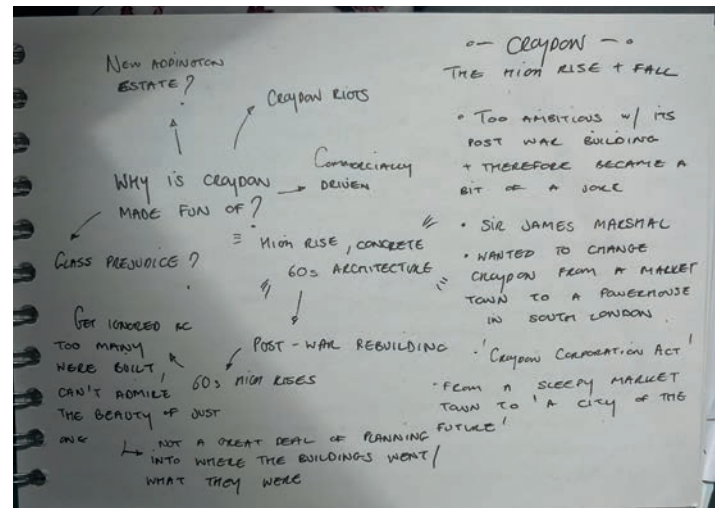 New Addington
Estate?
Croydon Riots
Why is Croydon
made fun of?
Commercially
driven
Class prejudice?
High rise, concrete
60s architecture
Post-war rebuilding
60s high rises
Get ignored bc
too many
were built,
can't admire
the beauty of just
one
Not a great deal of planning
into where the buildings went/
what they were
Croydon
The high rise + fall
• Too ambitious w/ its
post war building
+ therefore became a
bit of a joke
• Sir James Marshal
• wanted to change
Croydon from a market
town to a powerhouse
in South London.
• 'Croydon Corporation Act'
• From a sleepy market
town to 'a city of the
future'